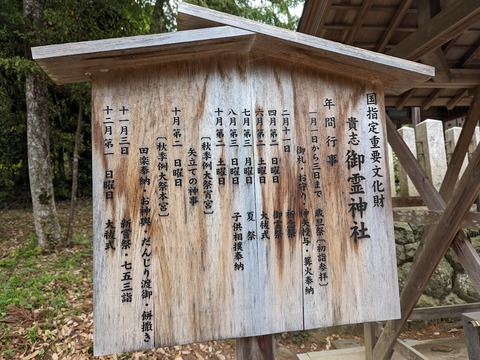 国指定重要文化財
貴志 御霊神社
年間行事
一月一日から三日まで 歳旦祭〔初詣参拝〕
御札・お守り・神矢授与・篝火奉納
二月十一日 祈年祭
四月第二 日曜日 御霊祭
六月第二 土曜日 大祓式
七月第三 月曜日 夏祭
八月第三 日曜日 子供相撲奉納
十月第二 土曜日
〔秋季例大祭宵宮〕
矢立ての神事
十月第二 日曜日
〔秋季例大祭本宮〕
田楽奉納・お神輿・だんじり渡御・餅撒き
十一月三日 新嘗祭・七五三詣
十二月第一 日曜日 大祓式